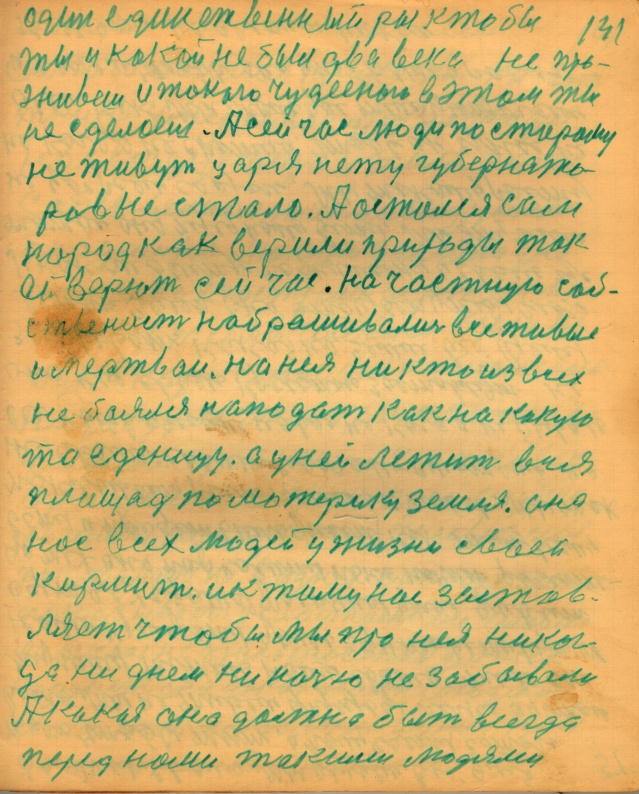 один единственный рас ктобы 131
ты и какой не был два века не про-
живеш и такого чудесного в этом ты
не сделоеш. А сейчас люди постарому
не живут царя нету губернато
ров не стало. А осталса сам
народ как верили природы так
ей верют сейчас. На частную соб-
ственост набрашивалис вче живые
и мертваи. на нея никто из всех
не баялся нападат как на какую
та еденицу. а у ней лежит вся
площад по матерыку земля. она
нас всех людей у жизни своей
кормит. и к таму нас застав-
ляет чтобы мы про нея никог-
да ни днем ни ночю не забывали
А какая она должна быт всегда
перед нами такими людями